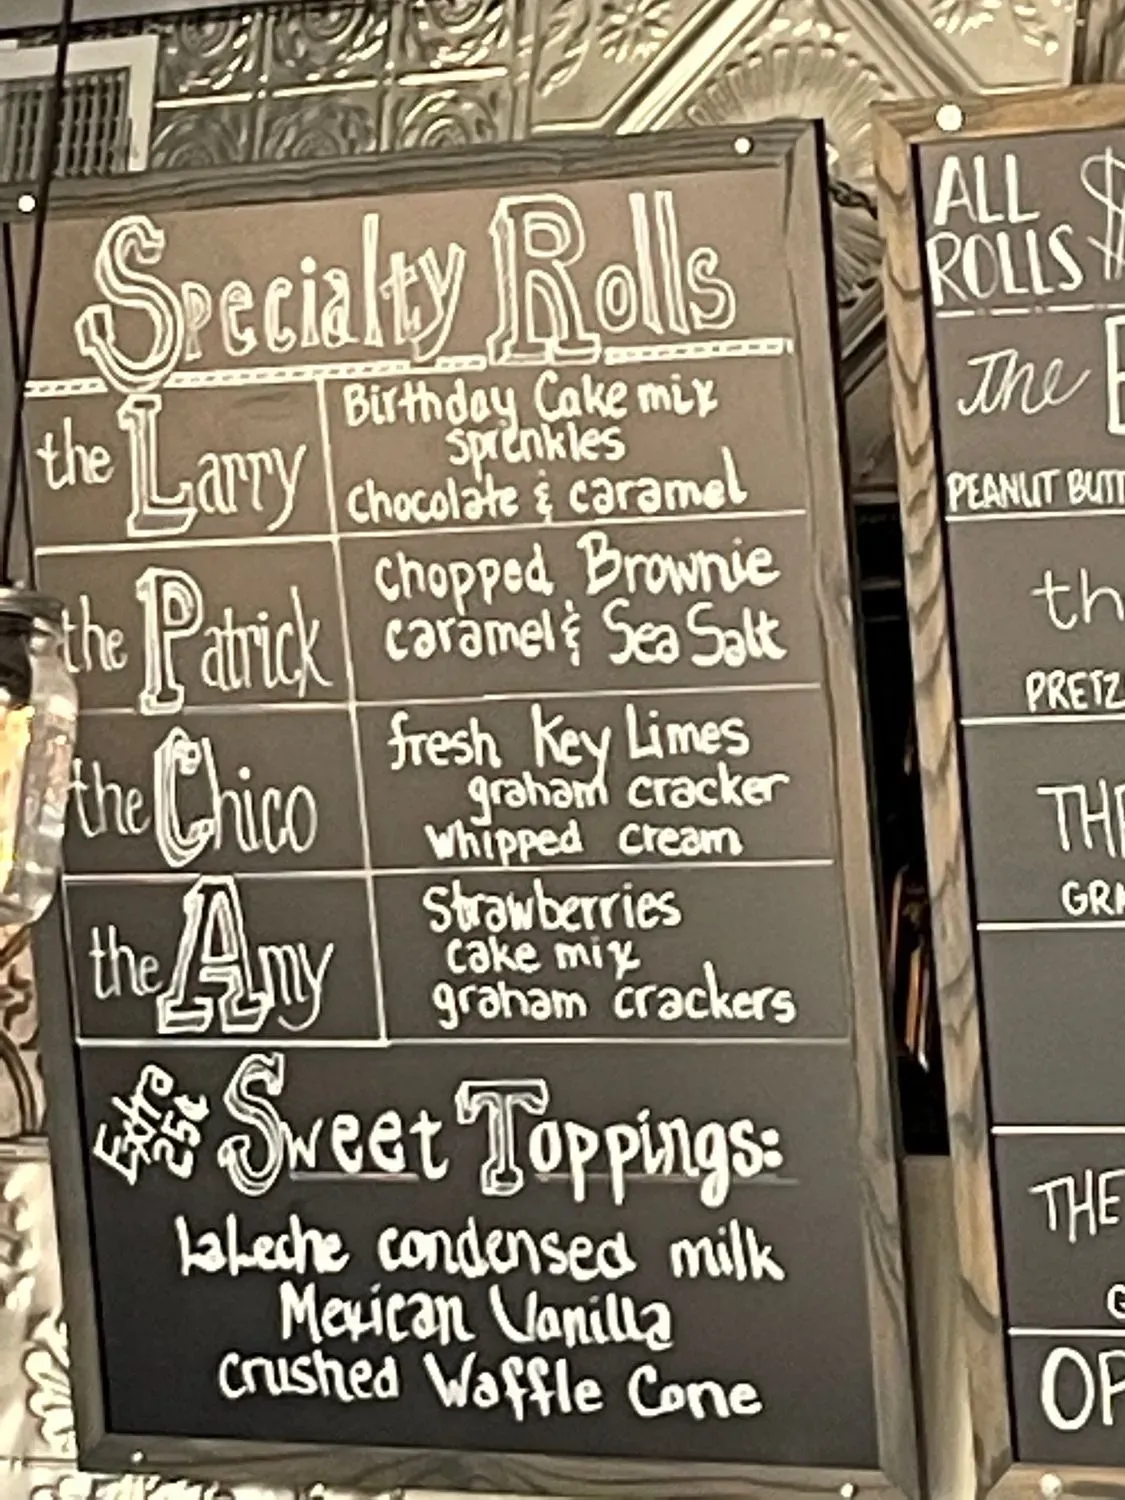 Specialty Rolls
the Larry
Birthday Cake mix
sprinkles
Chocolate & caramel
the Patrick
Chopped Brownie
caramel & Sea Salt
the Chico
fresh Key Limes
graham cracker
Whipped cream
the Amy
Strawberries
cake mix
graham crackers
Extra
25¢
Sweet Toppings:
LaLeche condensed milk
Mexican Vanilla
Crushed Waffle Cone
ALL
ROLLS $
The
PEANUT BUTT
th
PRETZ
THE
GRA
THE
G
OP